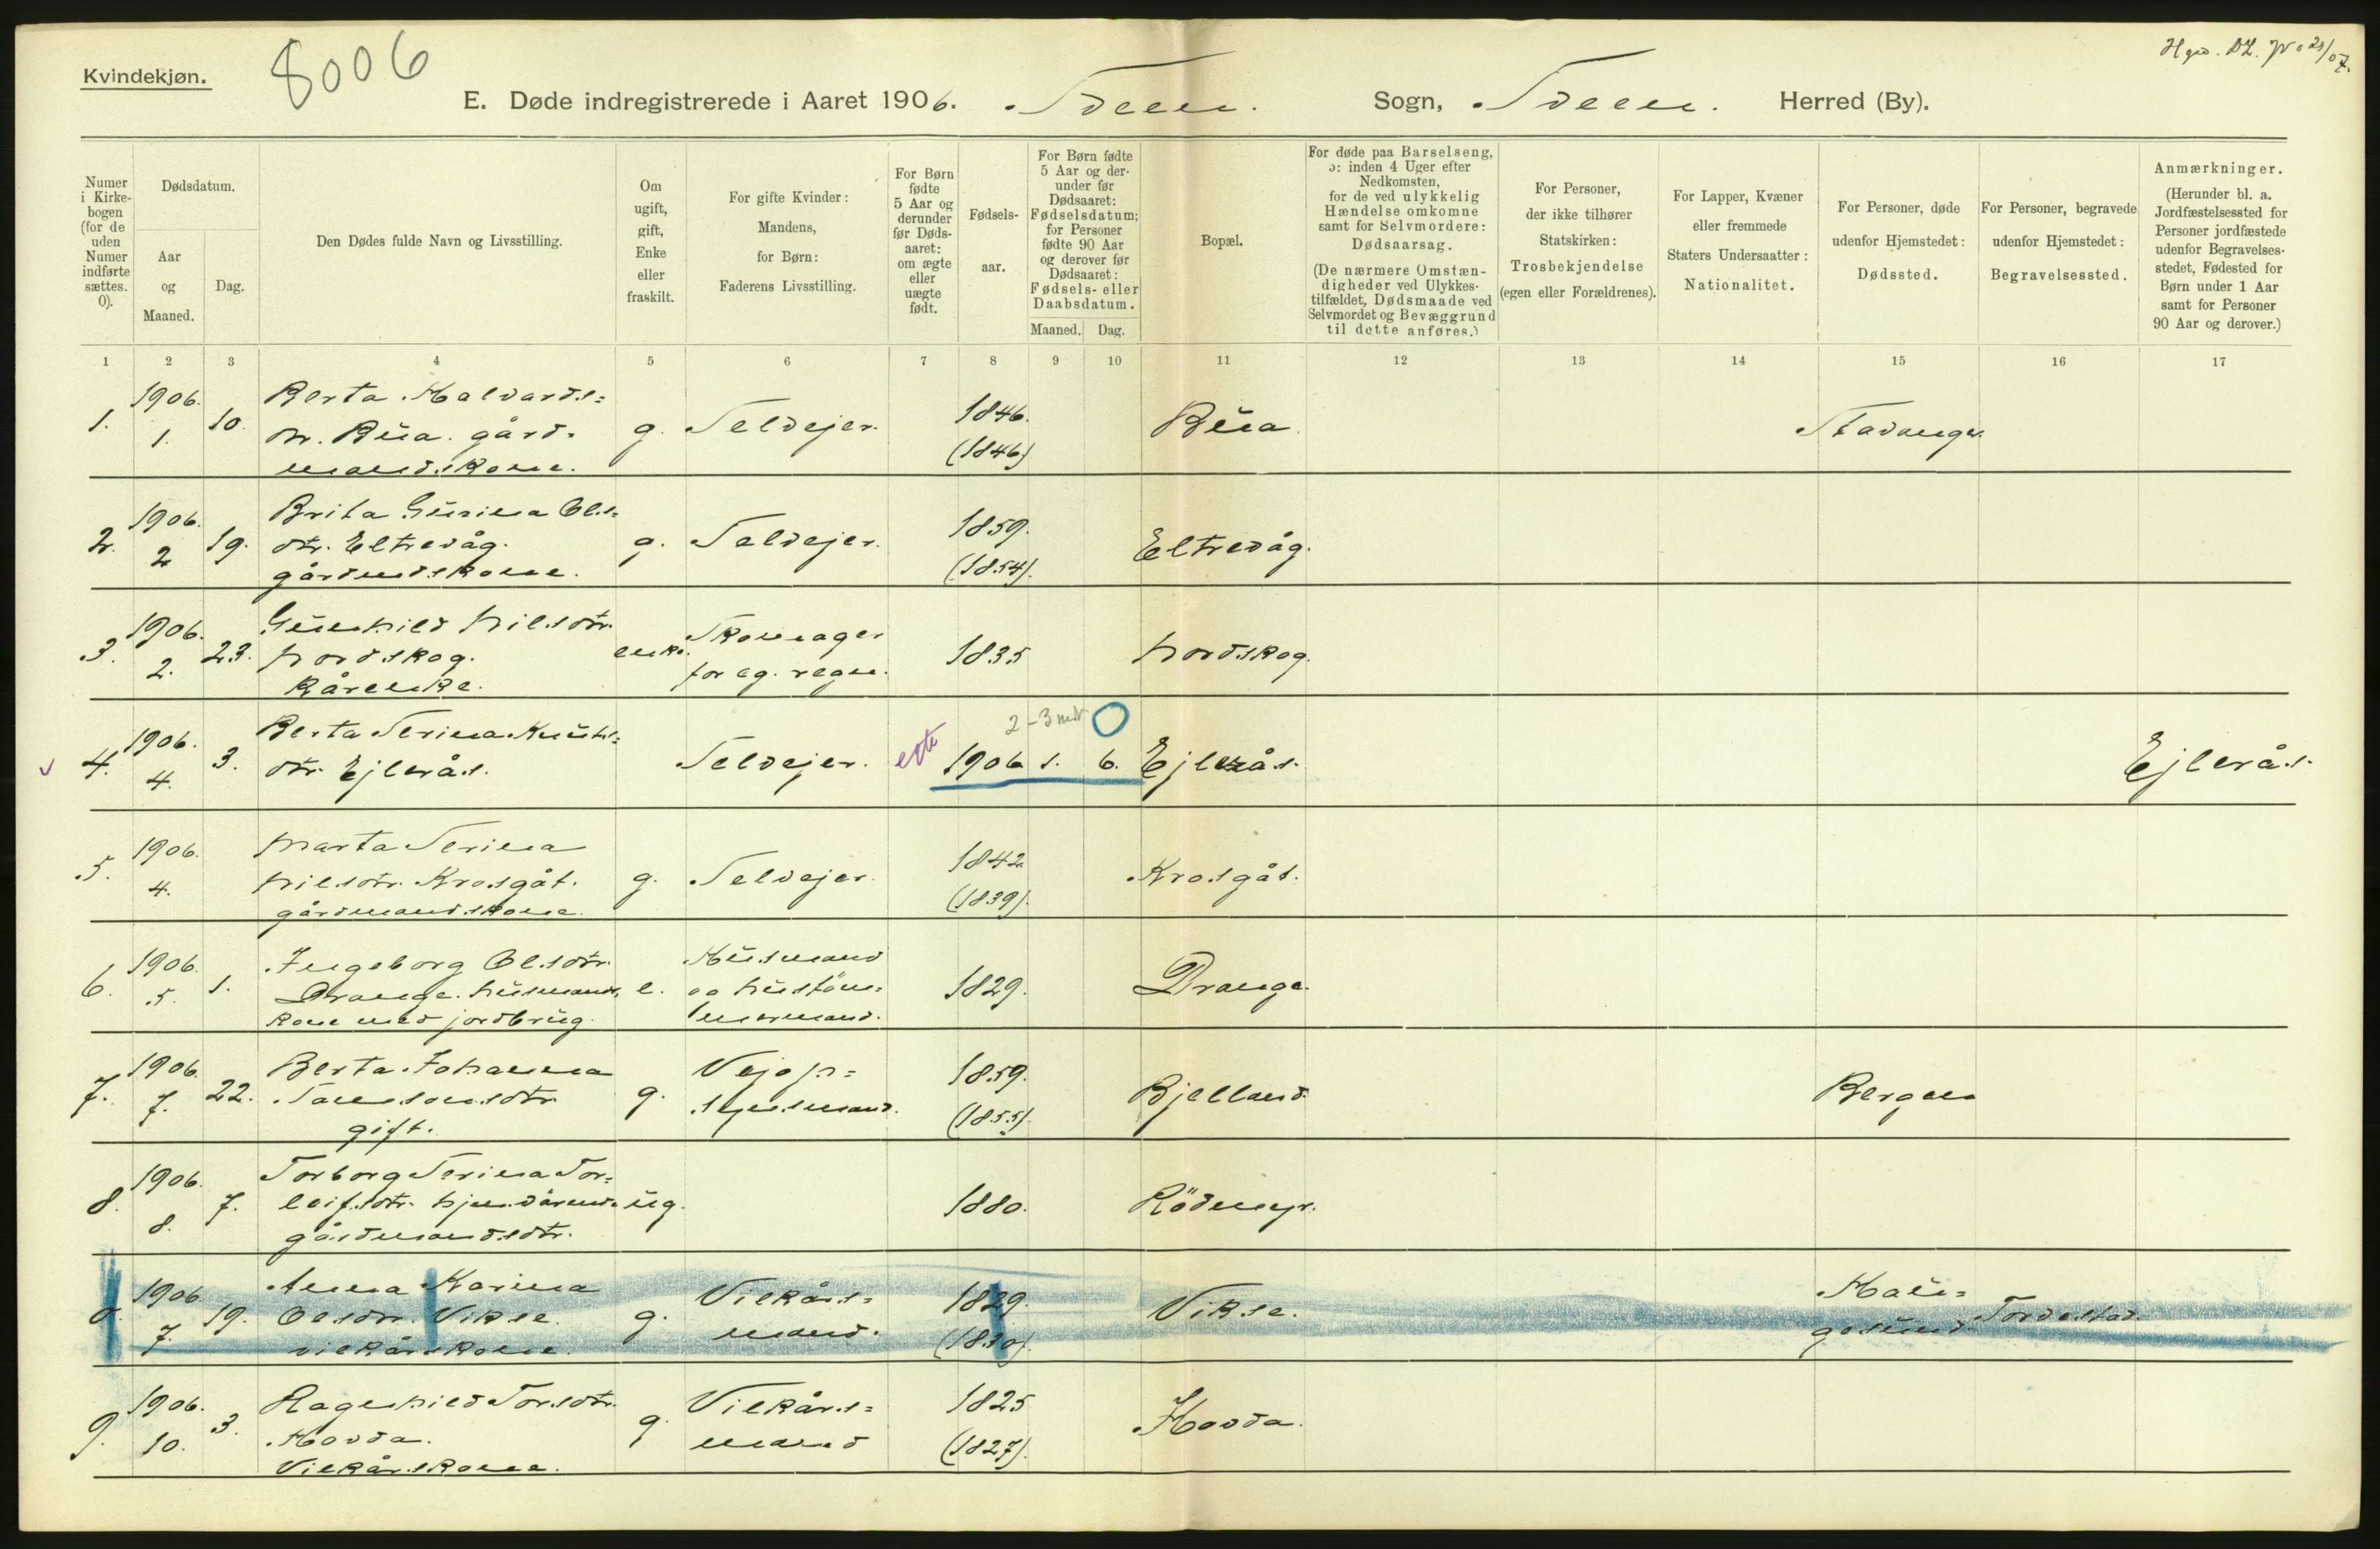 Kvindekjøn.
8006
E. Døde indregistrerede i Aaret 1906.
Sogn,
Herred (By).
Numer
i Kirke-
bogen
(for de
uden
Numer
indførte
sættes.
0).
Dødsdatum.
Aar
og
Maaned.
Dag.
Den Dødes fulde Navn og Livsstilling.
Om
ugift,
gift,
Enke
eller
fraskilt.
For gifte Kvinder:
Mandens,
for Børn:
Faderens Livsstilling.
For Børn
fødte
5 Aar og
derunder
før Døds-
aaret:
om ægte
eller
uægte
født.
Fødsels-
aar.
For Børn fødte
5 Aar og der-
under før
Dødsaaret:
Fødselsdatum;
for Personer
fødte 90 Aar
og derover før
Dødsaaret:
Fødsels- eller
Daabsdatum.
Maaned. Dag.
Bopæl.
For døde paa Barselseng,
ɔ: inden 4 Uger efter
Nedkomsten,
for de ved ulykkelig
Hændelse omkomne
samt for Selvmordere:
Dødsaarsag.
(De nærmere Omstæn-
digheder ved Ulykkes-
tilfældet, Dødsmaade ved
Selvmordet og Bevæggrund
til dette anføres.)
For Personer,
der ikke tilhører
Statskirken:
Trosbekjendelse
(egen eller Forældrenes).
For Lapper, Kvæner
eller fremmede
Staters Undersaatter:
Nationalitet.
For Personer, døde
udenfor Hjemstedet:
Dødssted.
For Personer, begravede
udenfor Hjemstedet:
Begravelsessted.
Anmærkninger.
(Herunder bl. a.
Jordfæstelsessted for
Personer jordfæstede
udenfor Begravelses-
stedet, Fødested for
Børn under 1 Aar
samt for Personer
90 Aar og derover.)
1 2 3 4 5 6 7 8 9 10 11 12 13 14 15 16 17
1. 1906. 1. 10.
Berta Halvards=
dtr. Bua. gård=
mandskone.
g. Selvejer. 1846. (1846) Bua. Stavanger.
2. 1906. 2 19.
Brita Gurina Ols=
dtr. Eltrevåg.
gårdmdskone.
g. Selvejer. 1859. (1854). Eltrevåg.
3. 1906. 2. 23.
Gunhild Nilsdtr.
Nordskog.
Kårenke.
enke.
for eg. regn.
1835 Nordskog.
4. 1906. 4. 3.
Berta Serina Knuts=
dtr. Ejlerås.
Selvejer. 2-3 mdr
1906 1. 6. Ejlerås. Ejlerås.
5. 1906. 4.
Marta Serina
Nilsdtr. Krosgåt.
gårdmandskone.
g. Selvejer. 1842 (1839). Krosgåt.
6. 1906. 5. 1.
Ingeborg Olsdtr.
Drange. husmands
kone med jordbrug.
e. Husmand
og hustöm=
mermand.
1829. Drange.
7. 1906. 7. 22.
Berta Johanna
Tønnesdtr
gift.
g. Vejop=
synsmand.
1859. (1855). Bjelland. Bergen
8. 1906. 8. 7.
Torborg Serina Tor=
leifsdtr.
gårdmandsdtr.
ug. 1880. Rödemyr.
0. 1906 7. 19.
Anna Karina
Olsdtr. Vikse.
vilkårskone.
g. Vilkårs=
mand.
1829. (1830). Vikse. Hau=
gesund. Torvestad.
9. 1906. 10. 3.
Ragnhild Torsdtr.
Hovda.
Vilkårskone.
g. Vilkårs=
mand
1825 (1827). Hovda.